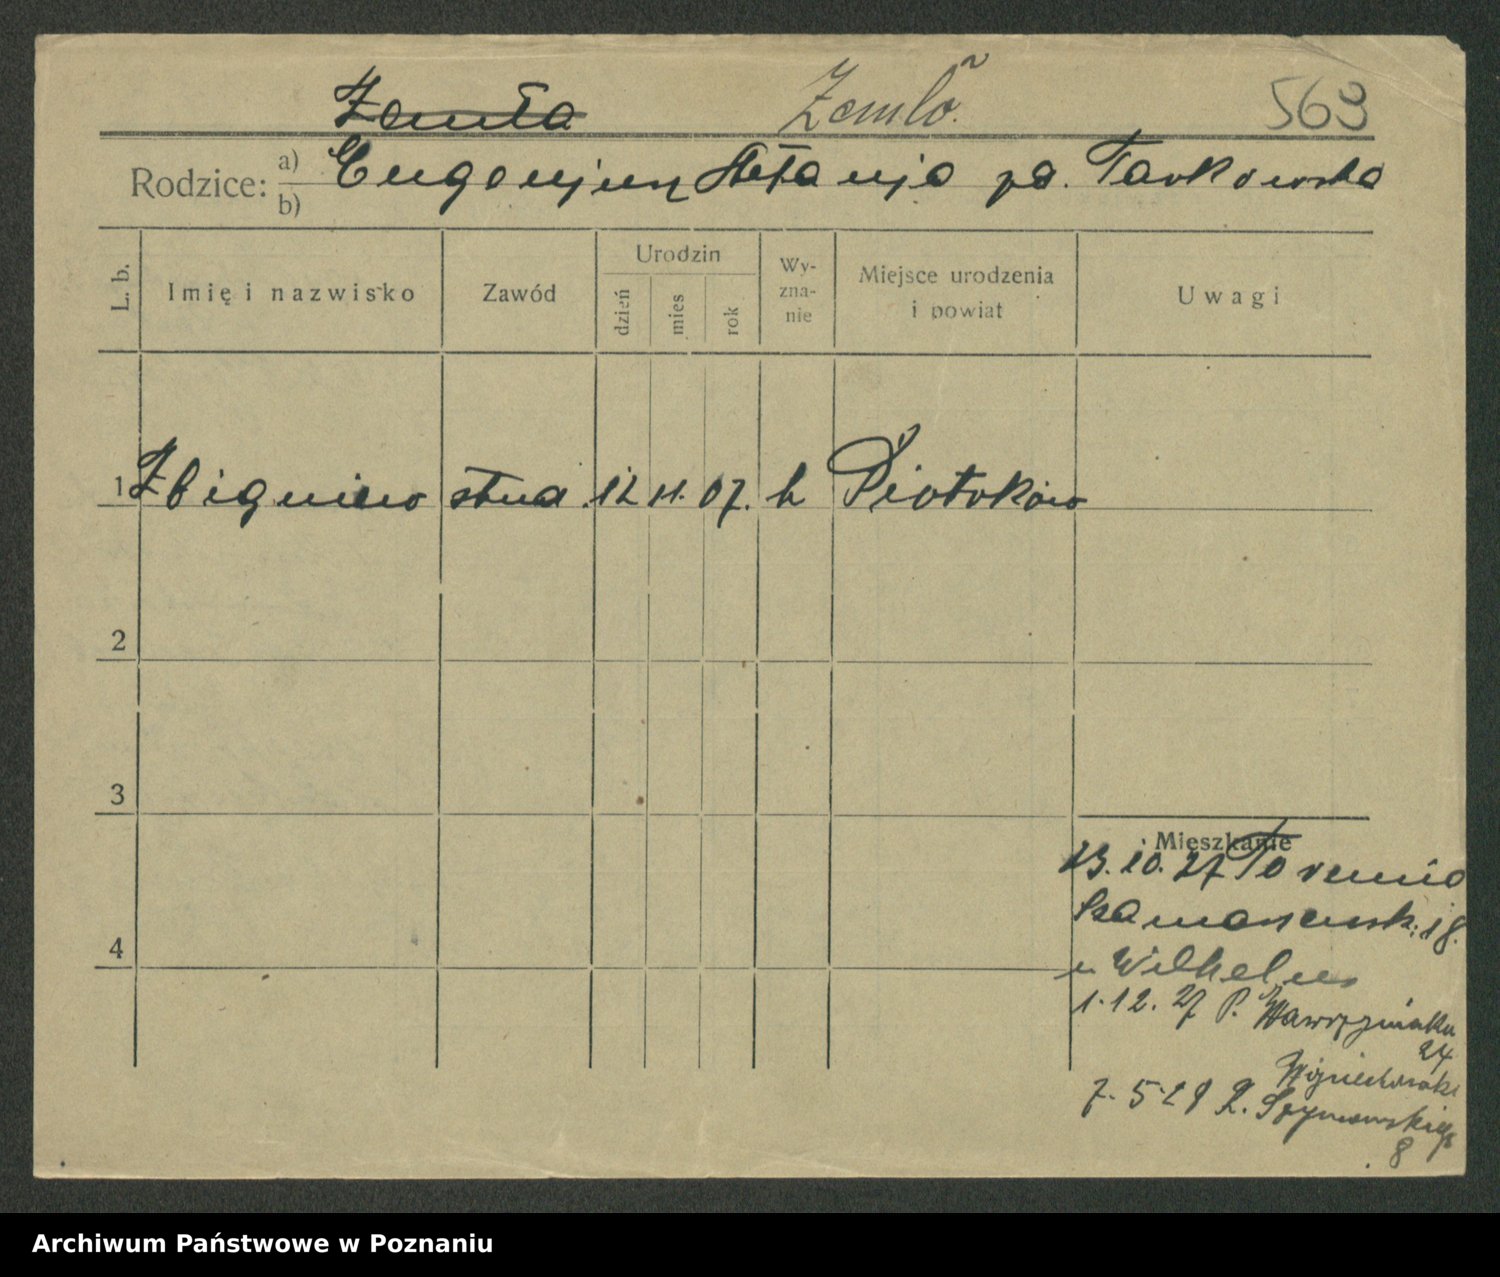 Zemła Zemło. 563
Rodzice: a) Eugenjusz Stefanja zd. Tarkowska
b)
L. b. Imię i nazwisko Zawód Urodzin dzień mies rok Wy-zna-nie Miejsce urodzenia i powiat Uwagi
1 Zbigniew stud. 12 11. 07. k Piotrków
2
3
Mieszkanie
13. 10. 27 Torunia
4 Szamarzewsk. 18.
u Wilhelms
1. 12. 27 P. Wawrzyniaka
24
Wojciechowski
7. 5 29 P. Szymanowskiego
8
Archiwum Państwowe w Poznaniu